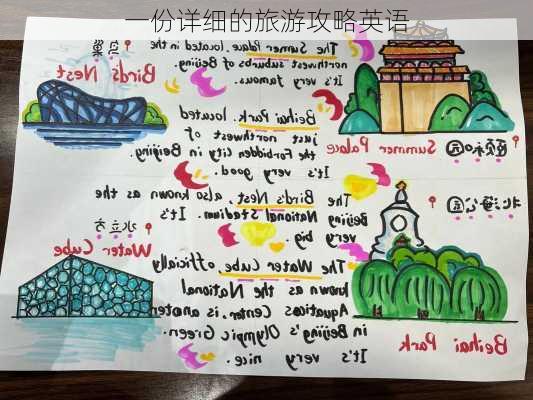 一份详细的旅游攻略英语
鸟巢
Bird's Nest
The Sumer Palace. located in the
northwest suburbs of Beijing.
It's very famous.
颐和园
Summer Palace
Beihai Park. located
just northwest of
the Forbidden City in Beijing.
It's very good.
水立方
Water Cube
The Bird's Nest. also known as the
Beijing National Stadium. It's
very big.
北海公园
Beihai Park
The Water Cube officially
known as the National
Aquatics Center, is
in Beijing's Olympic Green.
It's very nice.